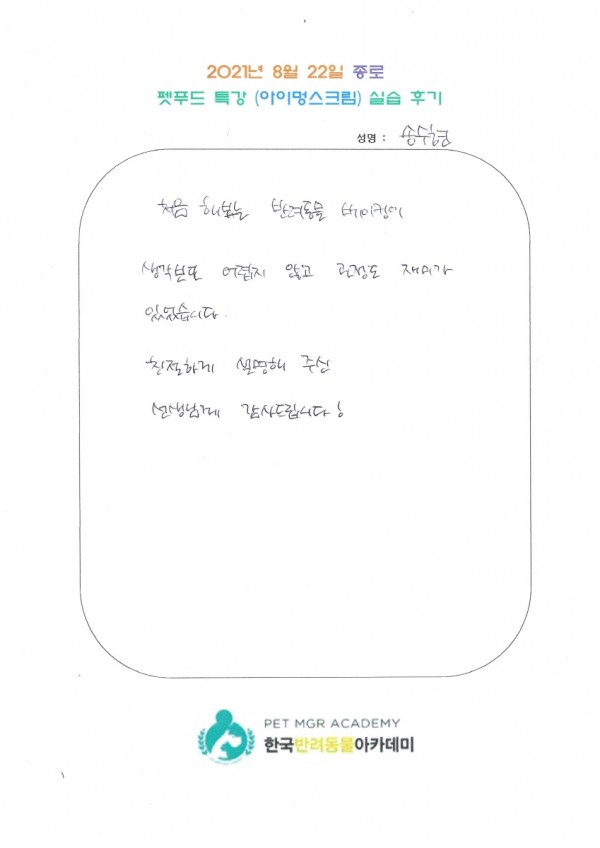 2021년 8월 22일 종로
펫푸드 특강 (아이멍스크림) 실습 후기
성명 : 송수현
처음 해보는 반려동물 베이킹이
생각보다 어렵지 않고 과정도 재미가
있었습니다.
친절하게 설명해 주신
선생님께 감사드립니다!
PET MGR ACADEMY
한국반려동물아카데미